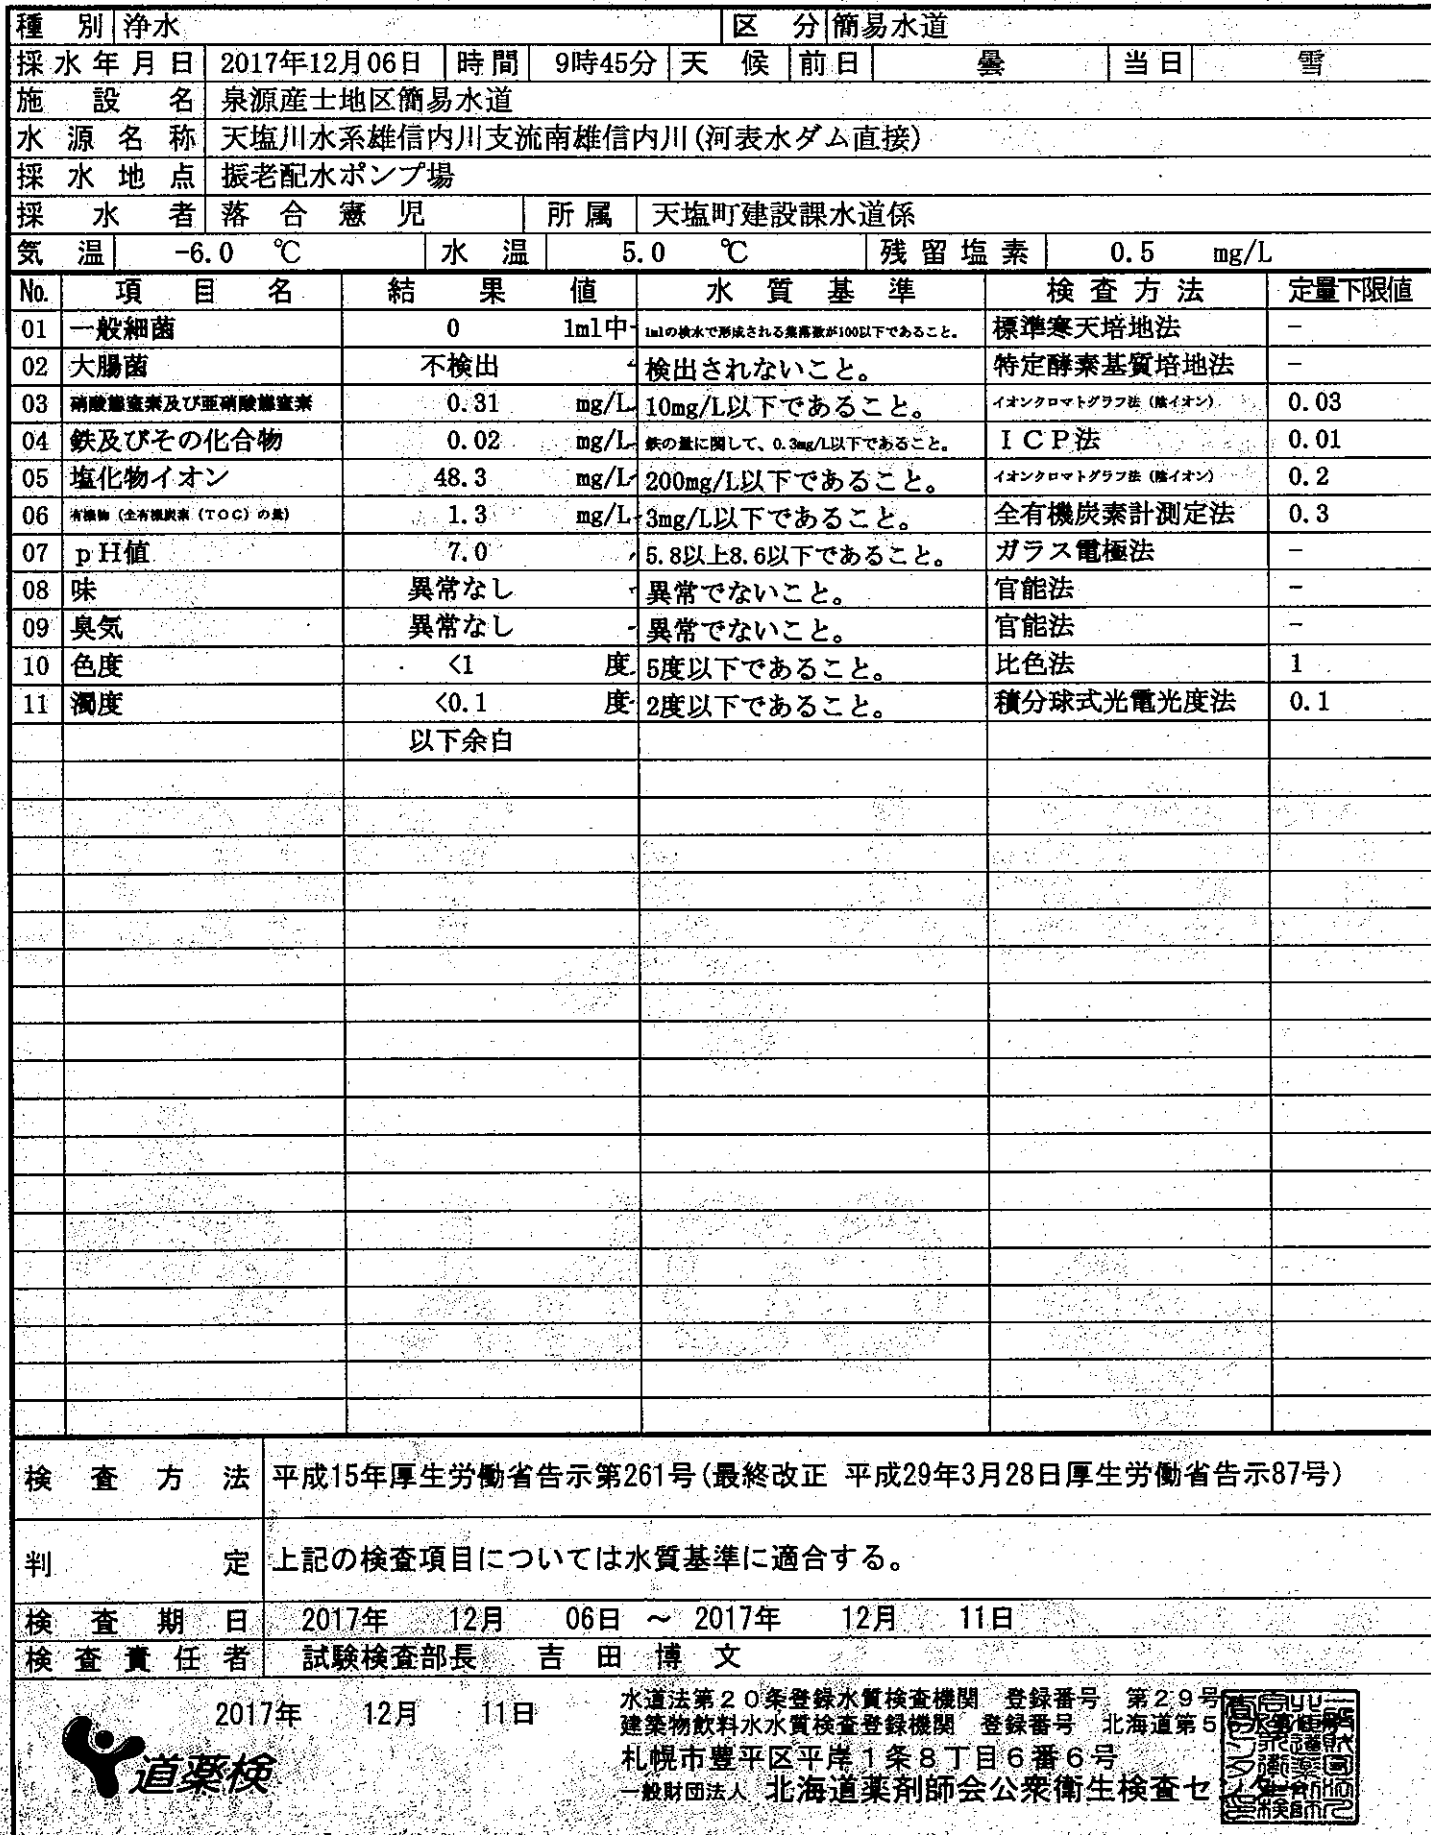 種 別 浄水 区 分 簡易水道
採水年月日 2017年12月06日 時間 9時45分 天 候 前日 曇 当日 雪
施 設 名 泉源産士地区簡易水道
水 源 名 称 天塩川水系雄信内川支流南雄信内川(河表水ダム直接)
採 水 地 点 振老配水ポンプ場
採 水 者 落 合 憲 児 所属 天塩町建設課水道係
気 温 -6.0 ℃ 水 温 5.0 ℃ 残留塩素 0.5 mg/L
No. 項 目 名 結 果 値 水 質 基 準 検査方法 定量下限値
01 一般細菌 0 1ml中 1mlの検水で形成される集落数が100以下であること。 標準寒天培地法 −
02 大腸菌 不検出 検出されないこと。 特定酵素基質培地法 −
03 硝酸態窒素及び亜硝酸態窒素 0.31 mg/L 10mg/L以下であること。 イオンクロマトグラフ法(陰イオン) 0.03
04 鉄及びその化合物 0.02 mg/L 鉄の量に関して、0.3mg/L以下であること。 ICP法 0.01
05 塩化物イオン 48.3 mg/L 200mg/L以下であること。 イオンクロマトグラフ法(陰イオン) 0.2
06 有機物(全有機炭素(TOC)の量) 1.3 mg/L 3mg/L以下であること。 全有機炭素計測定法 0.3
07 pH値 7.0 5.8以上8.6以下であること。 ガラス電極法 −
08 味 異常なし 異常でないこと。 官能法 −
09 臭気 異常なし 異常でないこと。 官能法 −
10 色度 <1 度 5度以下であること。 比色法 1
11 濁度 <0.1 度 2度以下であること。 積分球式光電光度法 0.1
以下余白
検 査 方 法 平成15年厚生労働省告示第261号(最終改正 平成29年3月28日厚生労働省告示87号)
判 定 上記の検査項目については水質基準に適合する。
検 査 期 日 2017年 12月 06日 ~ 2017年 12月 11日
検 査 責 任 者 試験検査部長 吉 田 博 文
2017年 12月 11日
水道法第20条登録水質検査機関 登録番号 第29号
建築物飲料水水質検査登録機関 登録番号 北海道第5
札幌市豊平区平岸1条8丁目6番6号
一般財団法人 北海道薬剤師会公衆衛生検査センター
道薬検